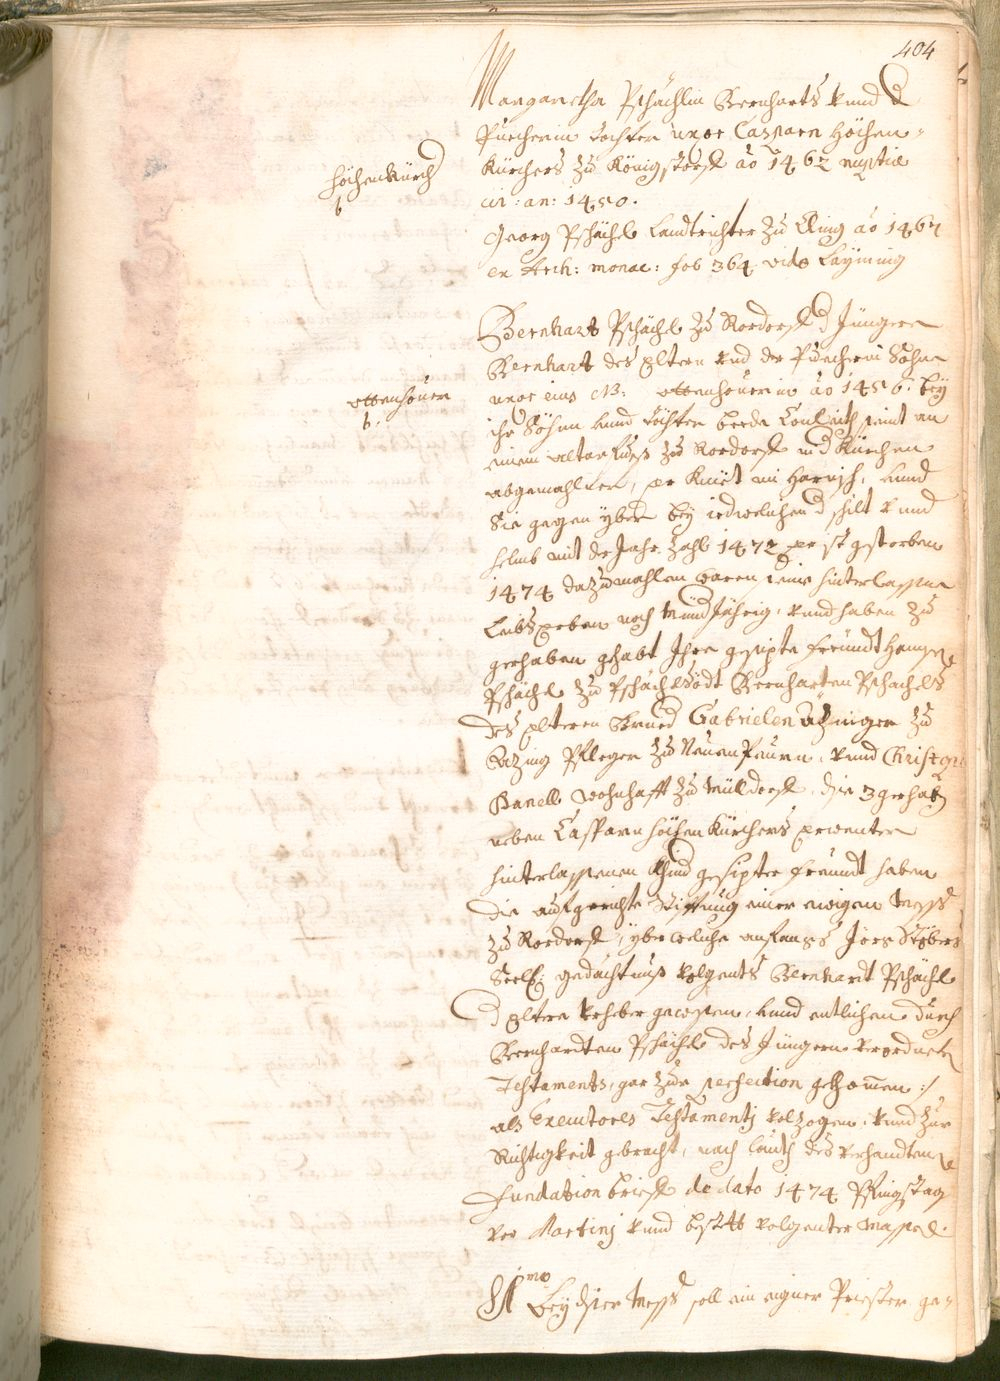 404
Margaretha Pschächlin Bernharts vnnd d
Puecherin Tochter uxor Casparn Höchen-
Kürchers zu Königstorff ao 1462 nuptiæ
cir: an: 1450.
Höchenkürch
Georg Pschächl Landtrichter zu Kling ao 1467
ex Arch: monac: fol 364 vide Leyming
Bernhart Pschächl zu Rordorff d Jüngere
Bernhart des Eltern vnd der Puecherin Sohn
uxor eius N: Ottenhouerin ao 1456. bey
Ottenhouer
ihr Söhn vnnd Töchter beede Conleith seint an
einem Altar Fuess zu Rordorff in d Kürchen
abgemahlter, er kniet im Harnisch, vnnd
Sie gegen yber bey iedwelchen d schilt vnnd
helmb mit der Jahr Zahl 1472 er ist gestorben
1474 dazumahlen waren seine hinterlassne
Leibs Erben noch Mind Jährig, vnnd haben zu
gerhaben gehabt Ihre gesipte freündt Hannsen
Pschächl zu Pschächlsödt Bernharten Pschachels
des Elteren Brued Gabrielen Äzinger zu
Äzing Pfleger zu Neuen Peurn, vnnd Christoph
Hanell wohnhafft zu Müldorff, dise 3 gerhaben
neben Casparn Höchen Kürchers
hinterlassenen Khind gesipter freündt haben
die aufgerichte Stifftung einer ewigen Mess
zu Rordorff, yber welche anfangs Jörg Stöbers
Seel: gedächtnus volgents Bernhardt Pschächl
d Eltere vrheber gewesen, vnnd entlichen durch
Bernhardten Pschächl des Jüngern verordneten
Testaments, gar zur perfection gekhommen :/
als Executores Testamentj volzogen, vnnd zur
Richtigkeit gebracht, nach Lauth des verhandtenen
Fundation brieff de dato 1474 Pfingstag
vor Martinj vnnd bestett volgenter massen.
1mo Bey diser Mess soll ein aigner Priester ge-